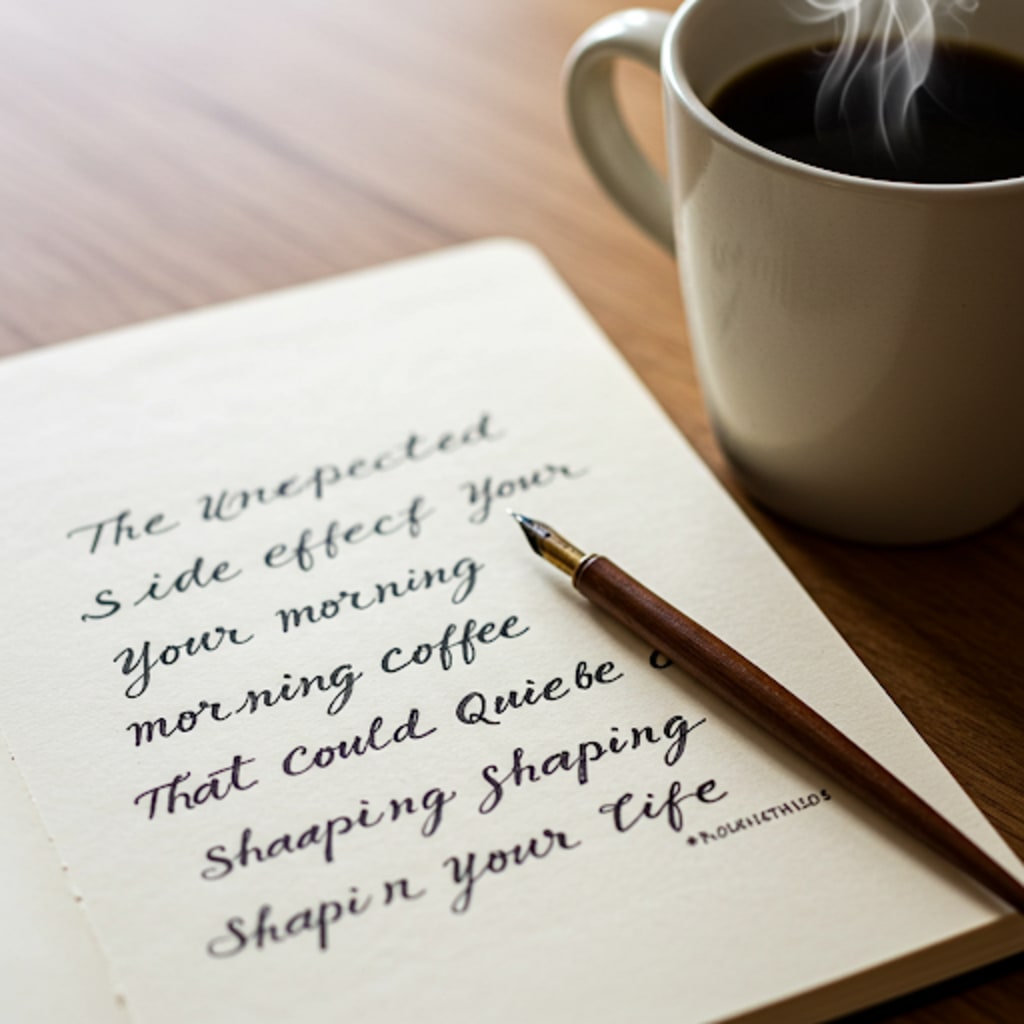 The Unepected
Side effect Your
Your morning
morning coffee
That could Quiebe
Shaaping Shaping
Shapin your life